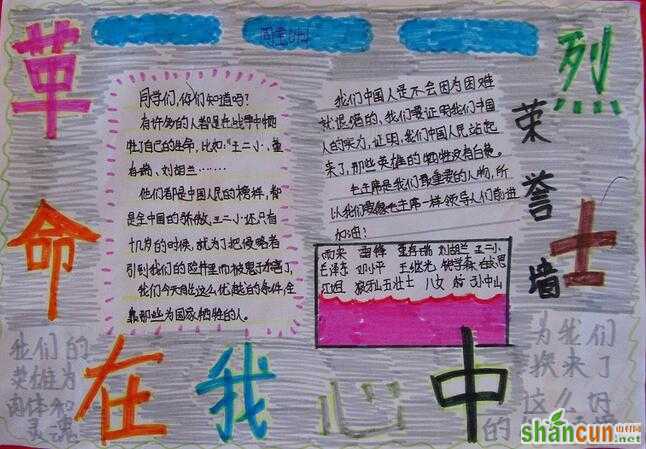 革命烈士
在我心中
同学们,你们知道吗?
有许多的人都是在战争中牺
牲了自己的生命,比如:"王二小、董
存瑞、刘胡兰……
他们都是中国人民的榜样,都
是全中国的骄傲,王二小还只有
十几岁的时候,就为了把侵略者
引到我们的
里而被鬼子杀害了,
我们今天有这么优越的条件,全
靠那些为国家牺牲的人。
我们中国人是不会因为困难
就退缩的,我们要证明我们中国
人的实力,证明,我们中国人民站起
来了,那些英雄的牺牲没有白费。
毛主席是我们最重要的人物,所
以我们要像毛主席一样领导人们前进
加油!
荣誉墙
雨来 雷锋 董存瑞 刘胡兰 王二小
毛泽东 邓小平 王继光 钱学森
江姐 狼牙山五壮士 八女 孙中山
我们的
英雄为
肉体和
灵魂
为我们
换来了
这么好
的
shancun
.net
山村网